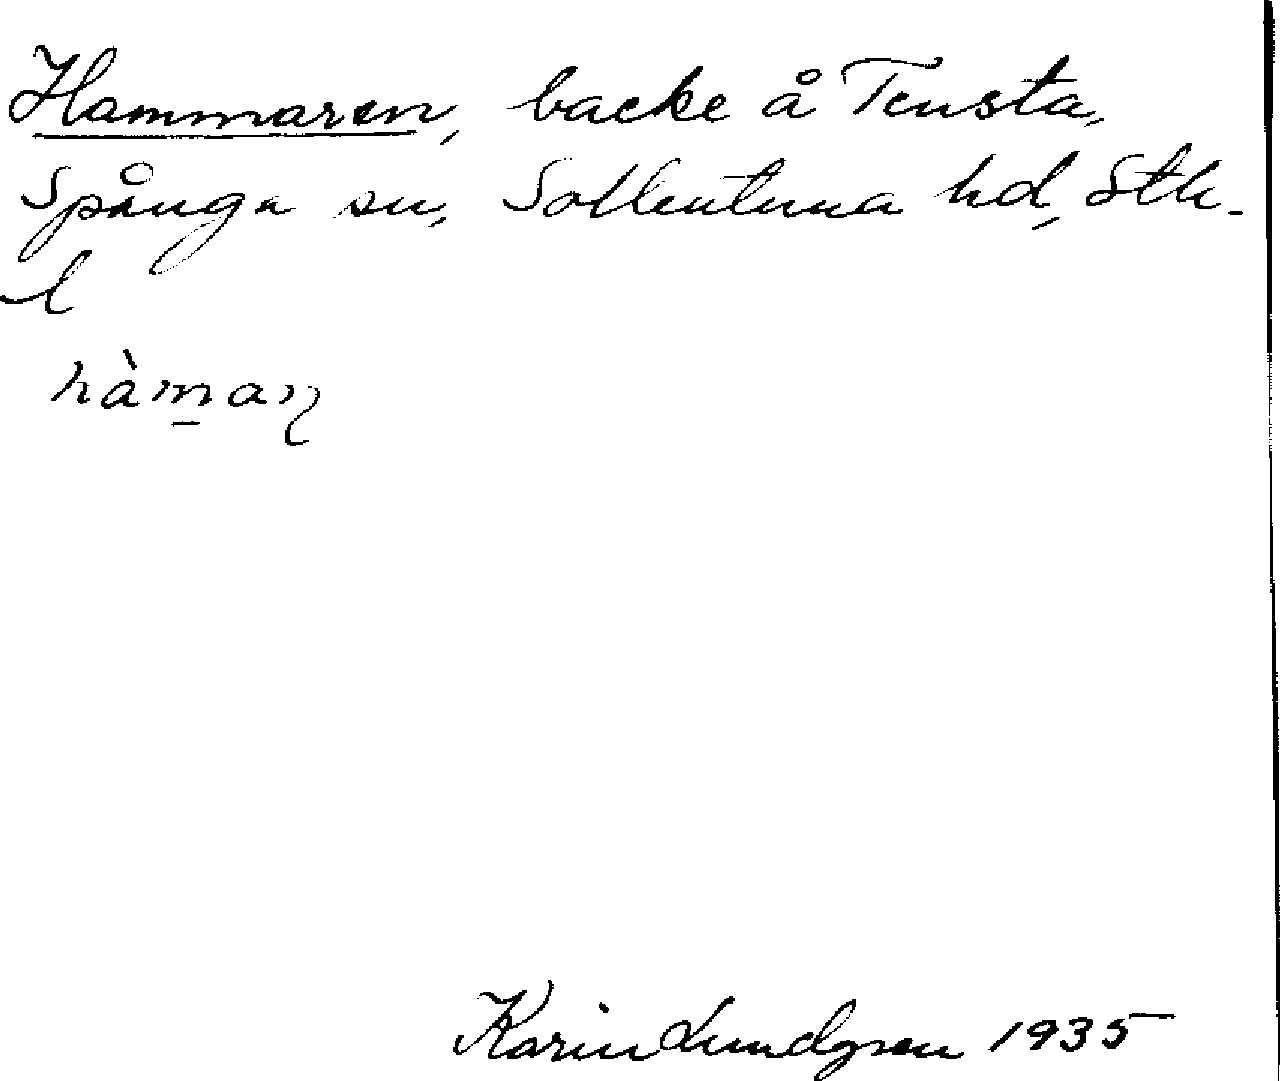 Hammaren, backe å Tensta,
Spånga sn, Sollentuna hd, Sth.
l
hàm̱aɳ
Karin Lundgren 1935